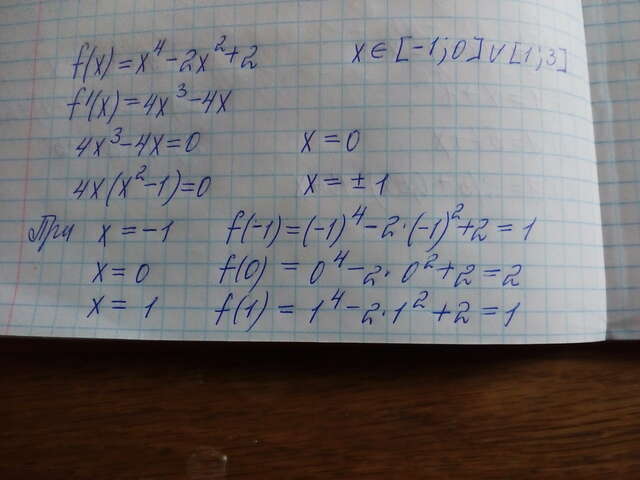 f(x) = x⁴ - 2x² + 2 x ∈ [-1; 0] ∨ [1; 3]
f'(x) = 4x³ - 4x
4x³ - 4x = 0 x = 0
4x(x² - 1) = 0 x = ± 1
При x = -1 f(-1) = (-1)⁴ - 2·(-1)² + 2 = 1
x = 0 f(0) = 0⁴ - 2·0² + 2 = 2
x = 1 f(1) = 1⁴ - 2·1² + 2 = 1